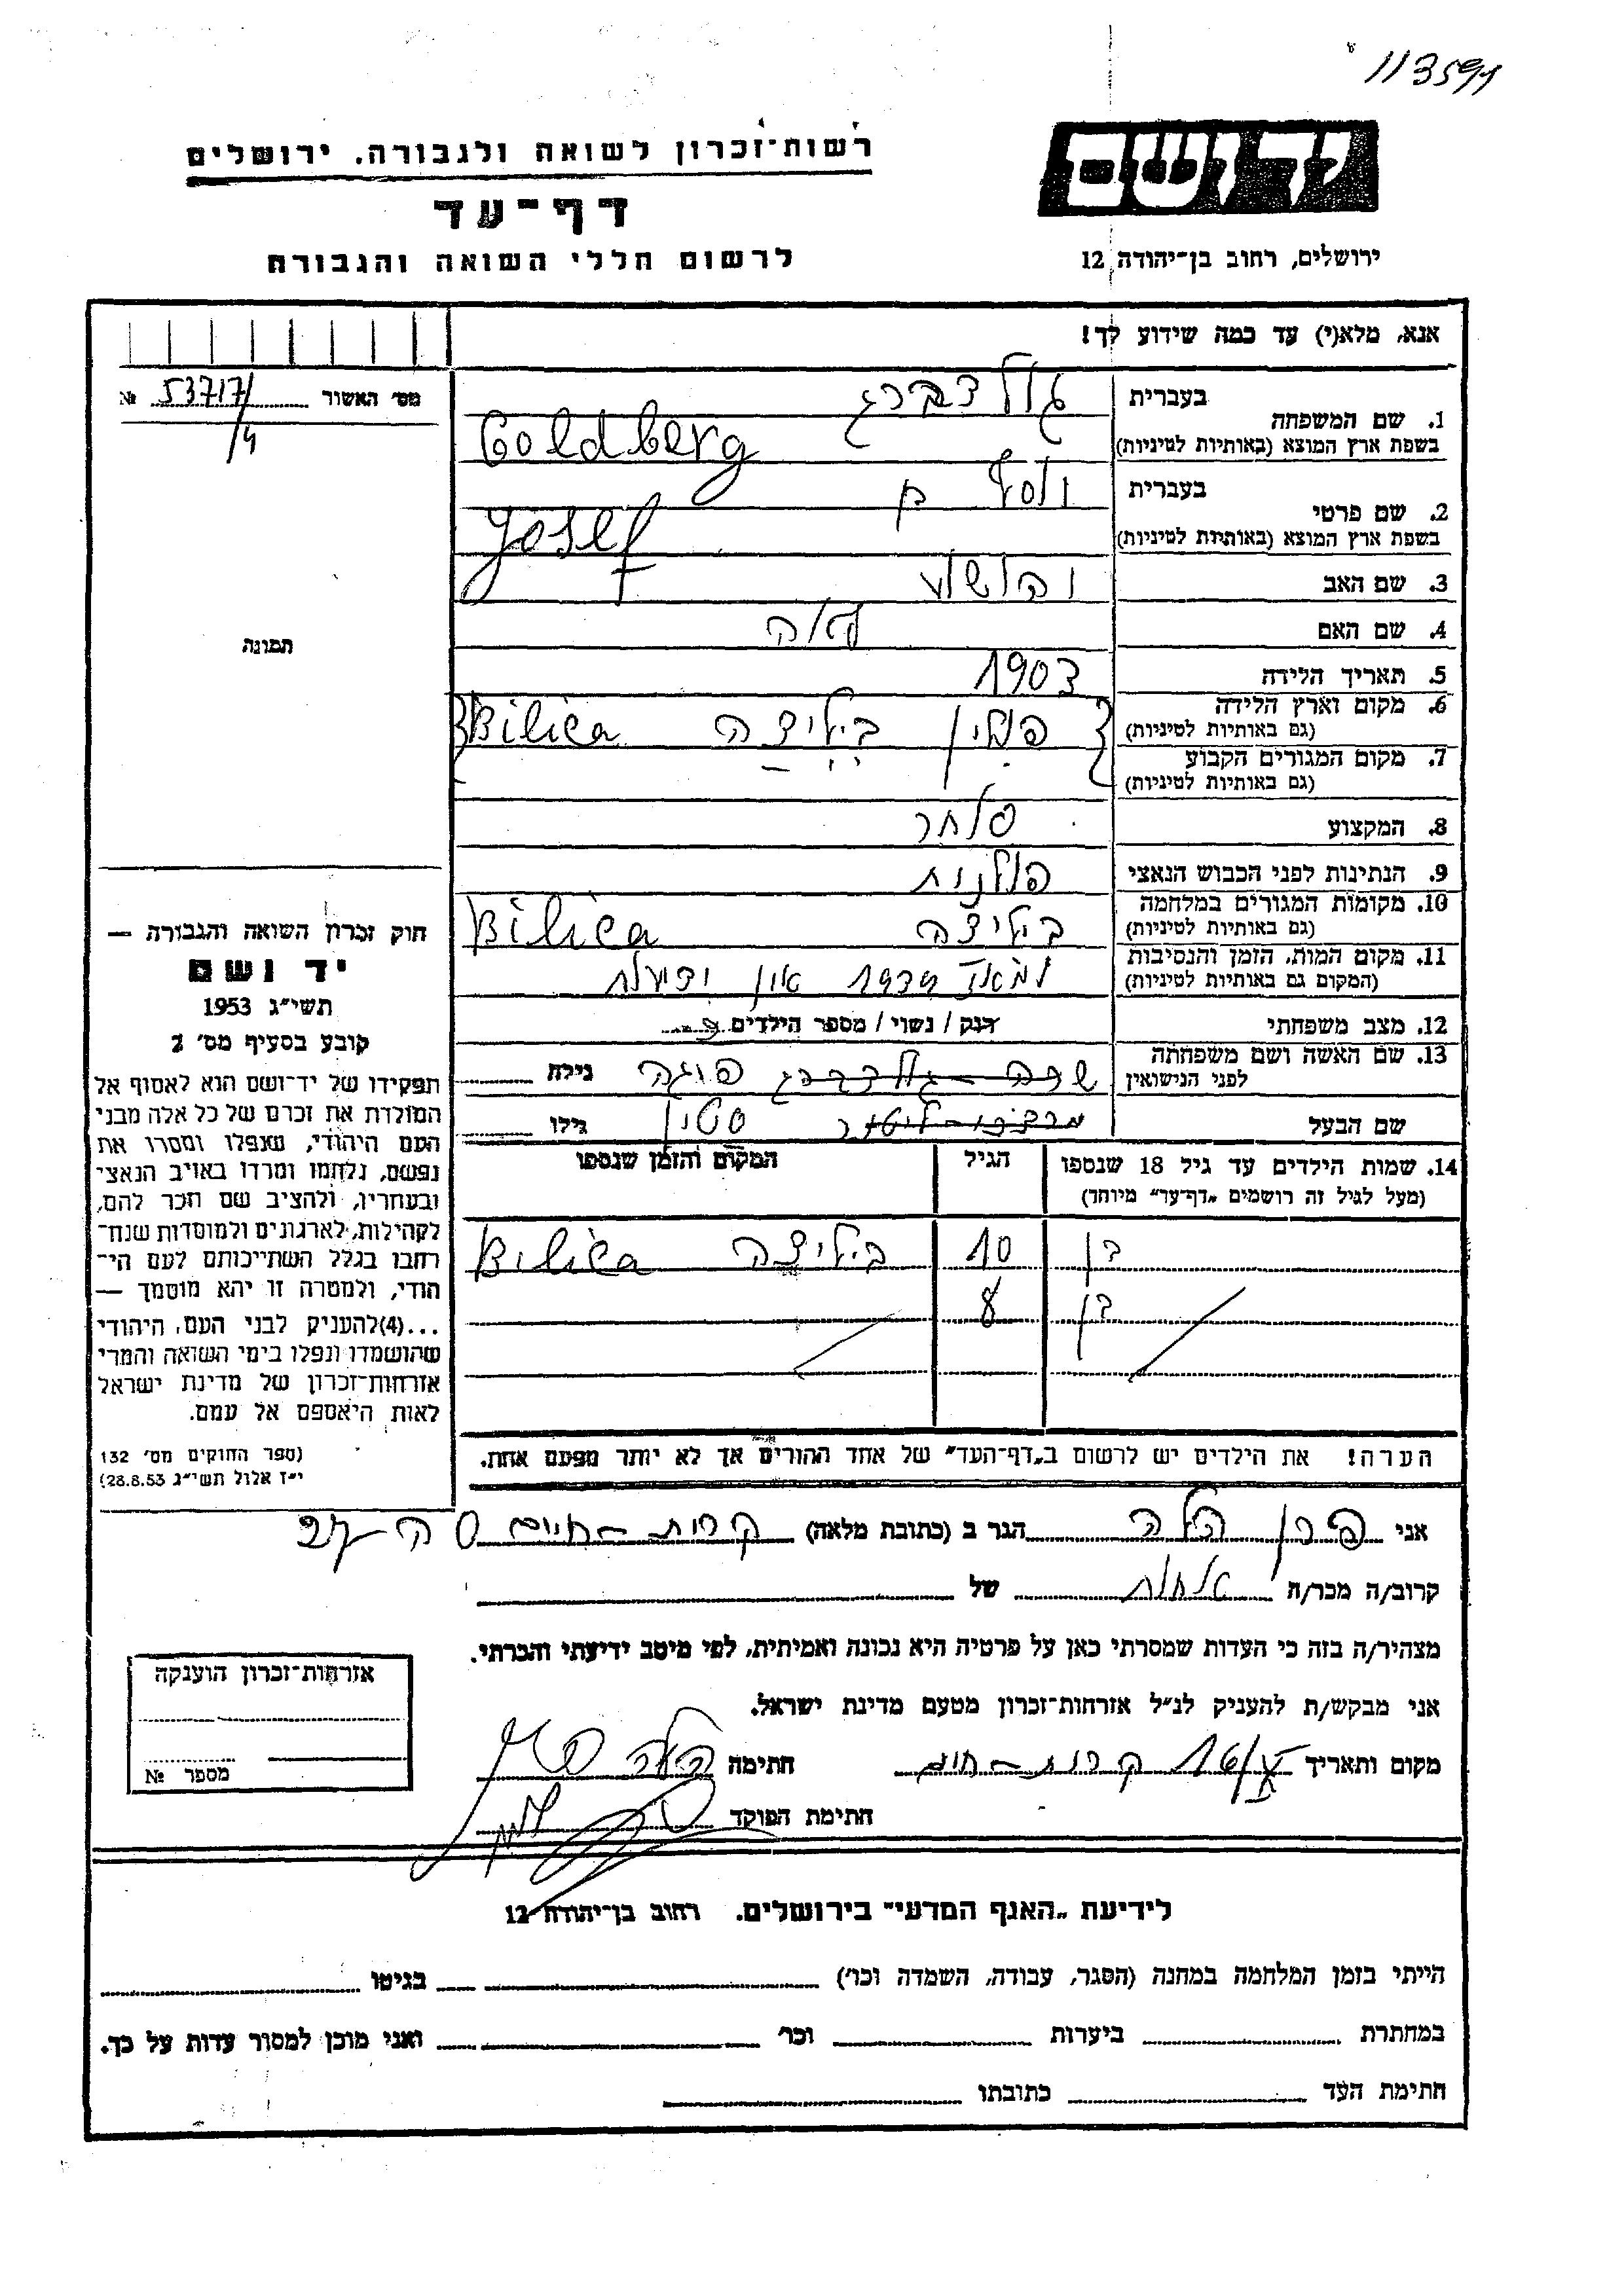 113591
יד ושם
רשות־זכרון לשואה ולגבורה, ירושלים
דף־עד
לרשום חללי השואה והגבורה
ירושלים, רחוב בן־יהודה 12
אנא, מלא(י) עד כמה שידוע לך!
מס׳ האשור 53717/ №
/4
תמונה
1. שם המשפחה
בעברית גולדברג
בשפת ארץ המוצא (באותיות לטיניות) Goldberg
2. שם פרטי
בעברית יוסף
בשפת ארץ המוצא (באותיות לטיניות) Josef
3. שם האב יהושע
4. שם האם
5. תאריך הלידה 1903
6. מקום וארץ הלידה
(גם באותיות לטיניות) פולין ביליצה Bilica
7. מקום המגורים הקבוע
(גם באותיות לטיניות)
8. המקצוע סוחר
9. הנתינות לפני הכבוש הנאצי פולנית
10. מקומות המגורים במלחמה
(גם באותיות לטיניות) ביליצה Bilica
11. מקום המות, הזמן והנסיבות
(המקום גם באותיות לטיניות) אין ידיעות
12. מצב משפחתי רוק / נשוי / מספר הילדים
13. שם האשה ושם משפחתה
לפני הנישואין גילה
שם הבעל גילו
14. שמות הילדים עד גיל 18 שנספו
(מעל לגיל זה רושמים „דף־עד״ מיוחד)
הגיל
המקום והזמן שנספו
בן 10 ביליצה Bilica
בן 8
הערה! את הילדים יש לרשום ב„דף־העד״ של אחד ההורים אך לא יותר מפעם אחת.
חוק זכרון השואה והגבורה —
יד ושם
תשי״ג 1953
קובע בסעיף מס׳ 2
תפקידו של יד־ושם הוא לאסוף אל
המולדת את זכרם של כל אלה מבני
העם היהודי, שנפלו ומסרו את
נפשם, נלחמו ומרדו באויב הנאצי
ובעוזריו, ולהציב שם וזכר להם,
לקהילות, לארגונים ולמוסדות שנח־
רבו בגלל השתייכותם לעם הי־
הודי, ולמטרה זו יהא מוסמך —
...(4)להעניק לבני העם, היהודי
שהושמדו ונפלו בימי השואה והמרי
אזרחות־זכרון של מדינת ישראל
לאות היאספם אל עמם.
(ספר החוקים מס׳ 132
י״ז אלול תשי״ג 28.8.53)
אני הגר ב (כתובת מלאה) קרית־חיים
קרוב/ה מכר/ה של
מצהיר/ה בזה כי העדות שמסרתי כאן על פרטיה היא נכונה ואמיתית, לפי מיטב ידיעתי והכרתי.
אני מבקש/ת להעניק לנ״ל אזרחות־זכרון מטעם מדינת ישראל.
מקום ותאריך קרית־חיים חתימה
חתימת הפוקד
אזרחות־זכרון הוענקה
מספר №
לידיעת „האגף המדעי״ בירושלים. רחוב בן־יהודה 12
הייתי בזמן המלחמה במחנה (הסגר, עבודה, השמדה וכו׳) בגיטו
במחתרת ביערות וכו׳ ואני מוכן למסור עדות על כך.
חתימת העד כתובתו